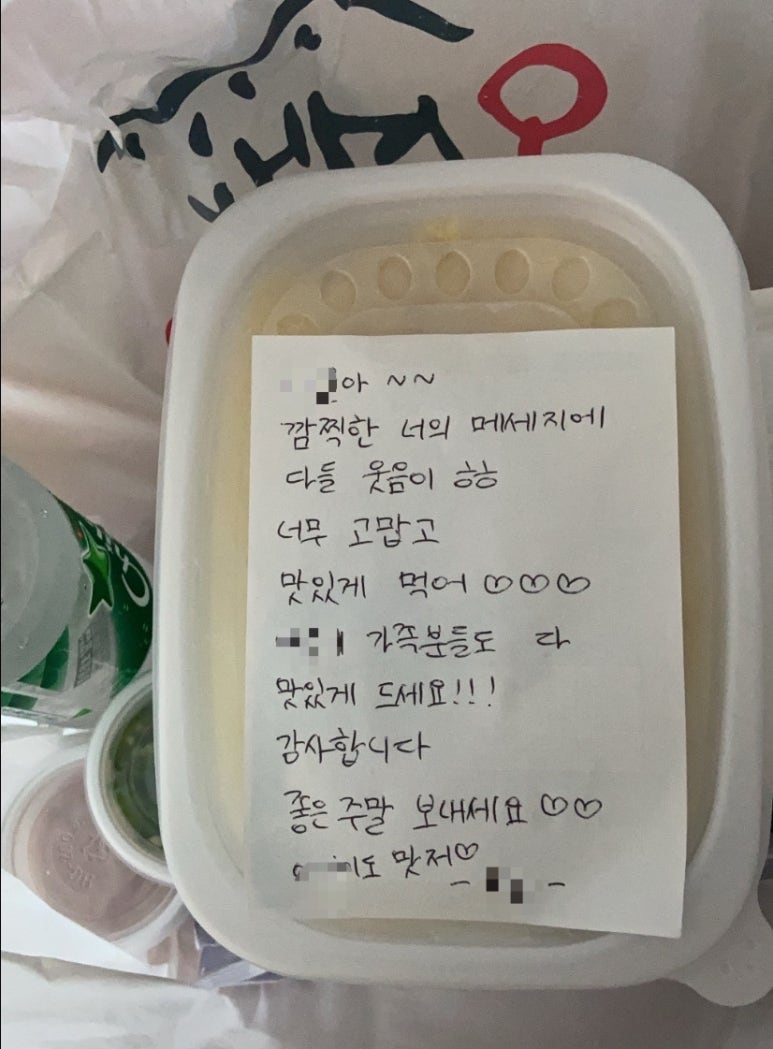 아 ~~
깜찍한 너의 메세지에
다들 웃음이 흐흐
너무 고맙고
맛있게 먹어 ♡♡♡
가족분들도 다
맛있게 드세요!!!
감사합니다
좋은 주말 보내세요 ♡♡
도 맛저♡